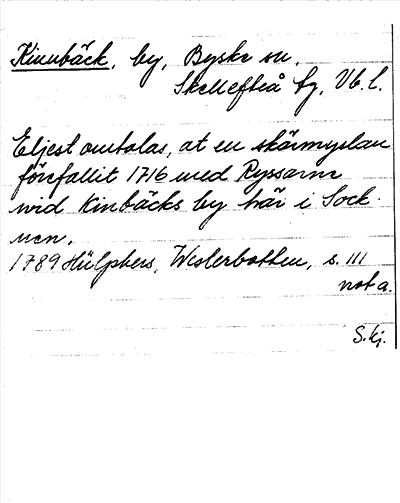 Kinnbäck, by, Byske sn,
Skellefteå tg, Vb. l.
Eljest omtalas, at en skärmyslan
förefallit 1716 med Ryssarne
wid Kinbäcks by här i Sock-
nen.
1789 Hülphers, Westerbotten, s. 111
not a.
S. kj.